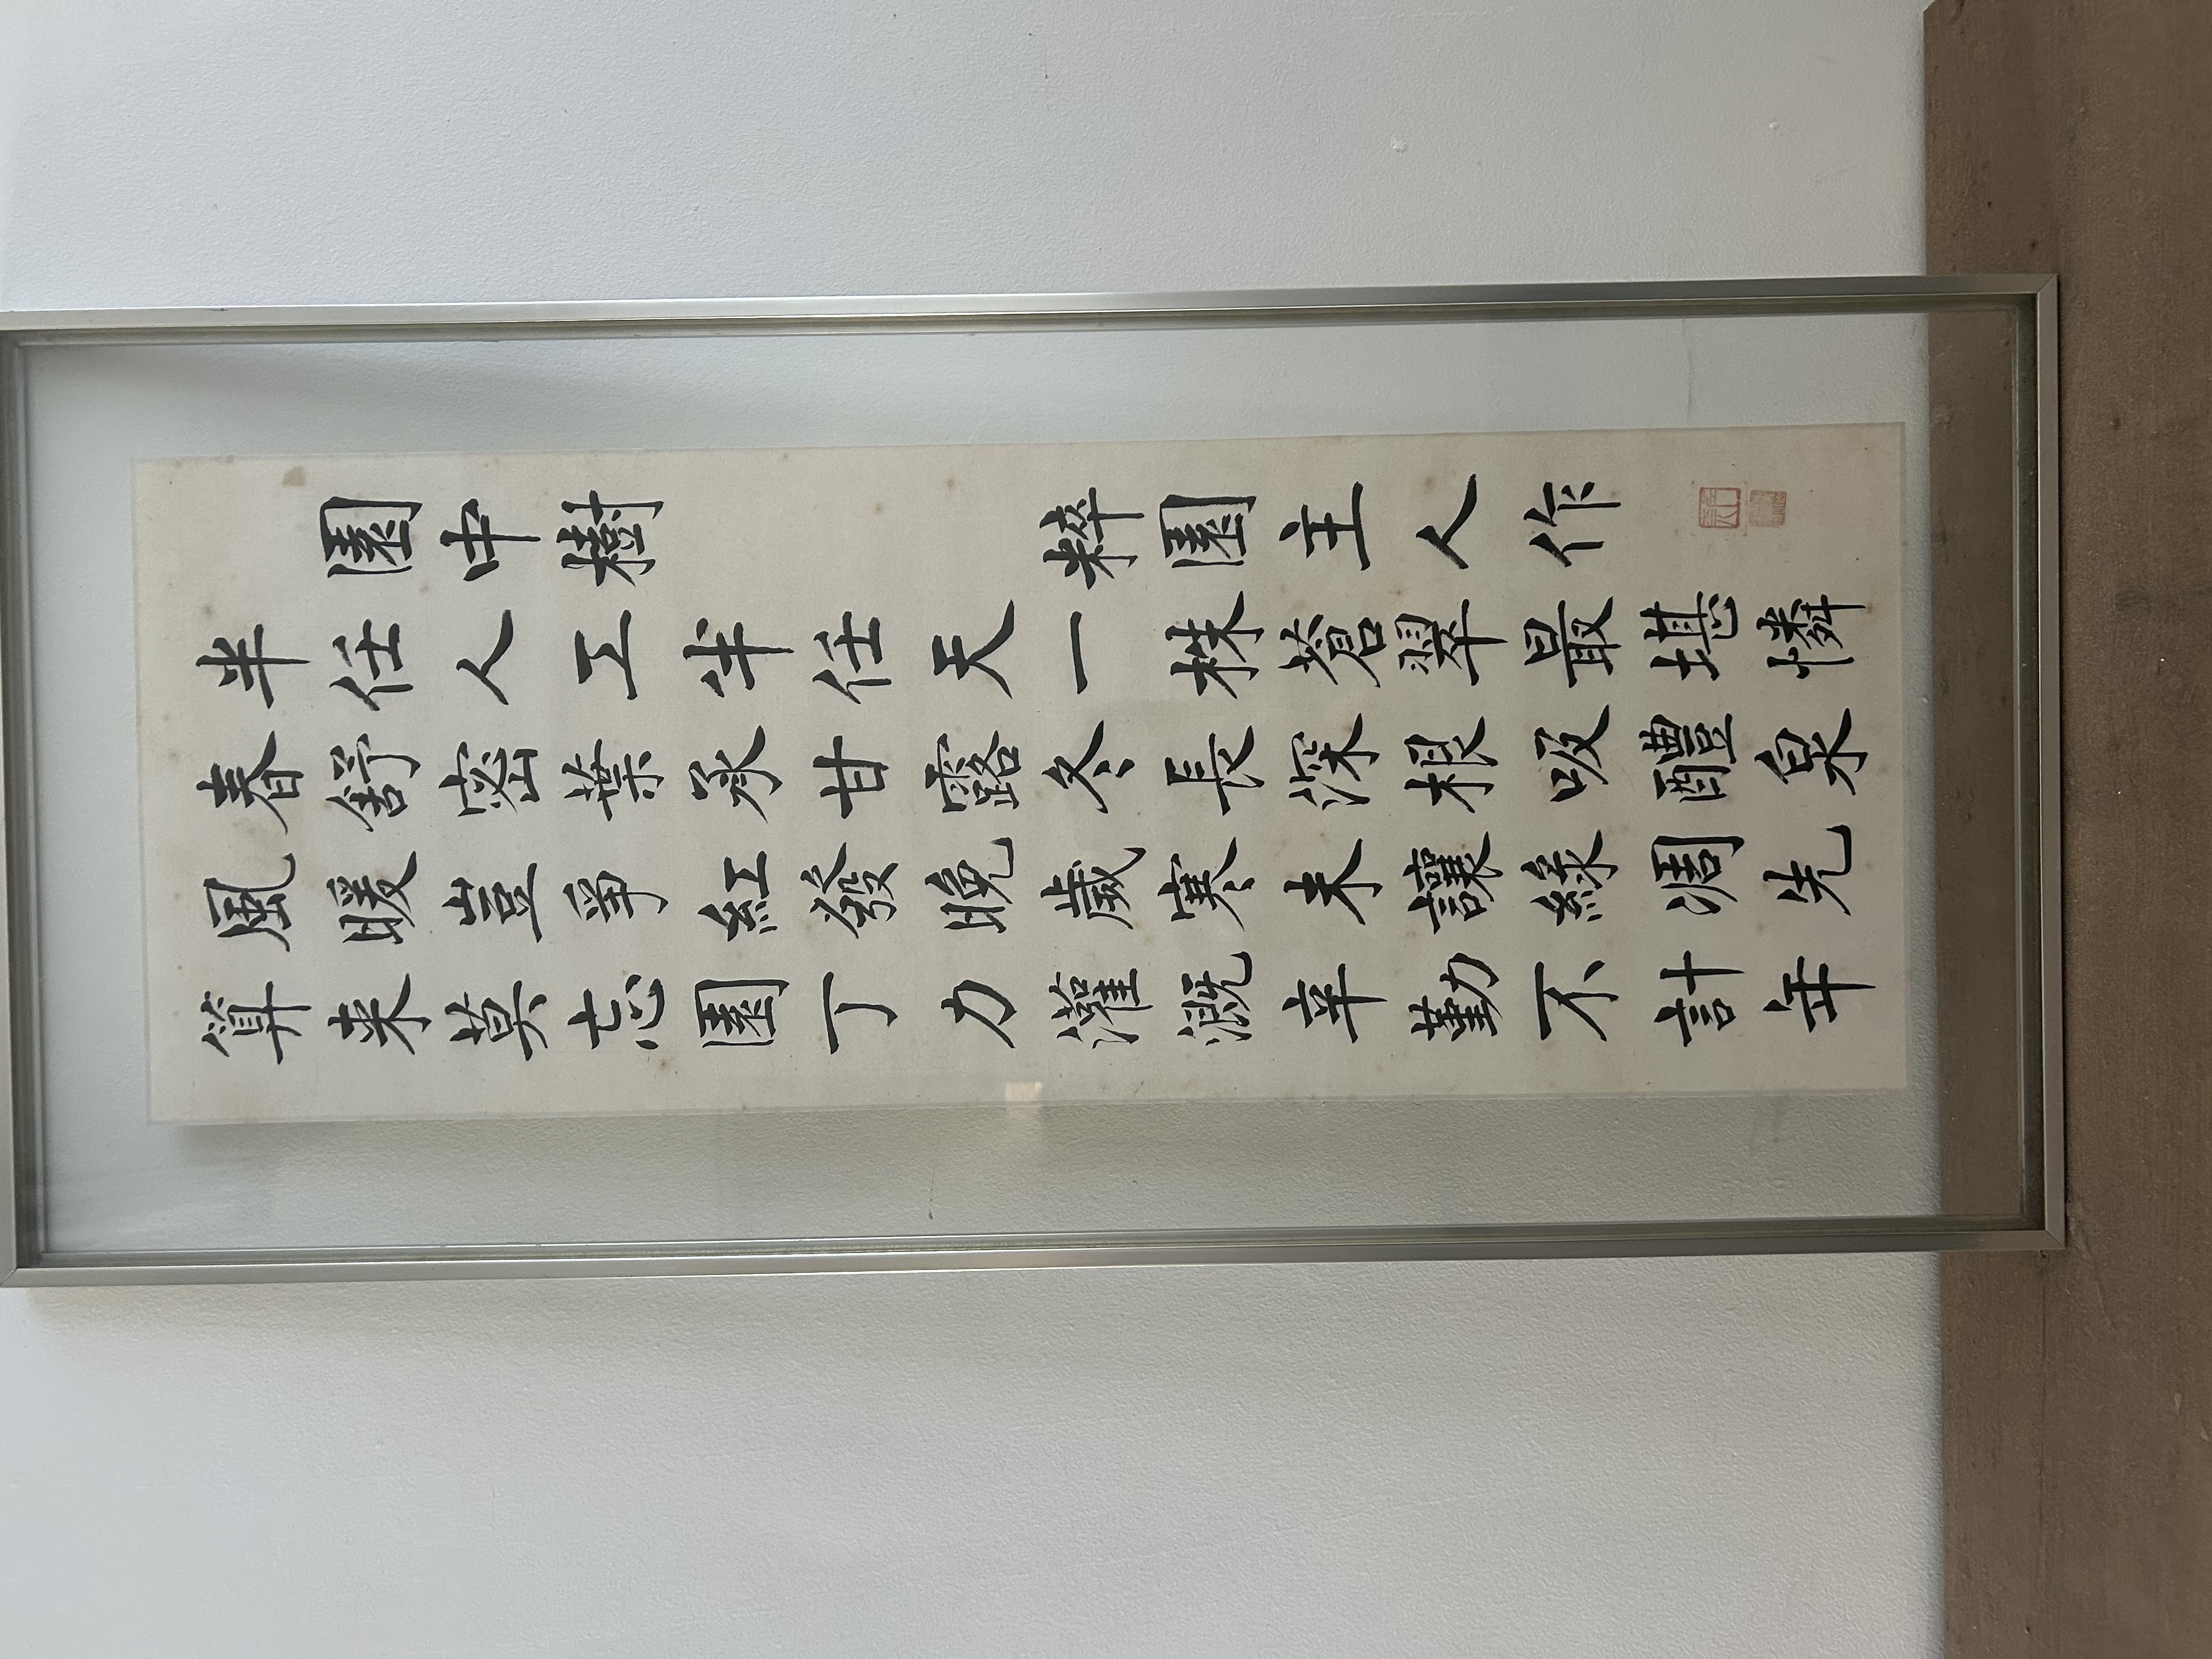 園中樹 粹園主人作
半任人工半任天一株蒼翠最堪憐
春舒密葉承甘露冬長深根吸醴泉
風暖豈爭紅發晚歲寒未讓綠凋先
算来莫忘園丁力灌溉辛勤不計年